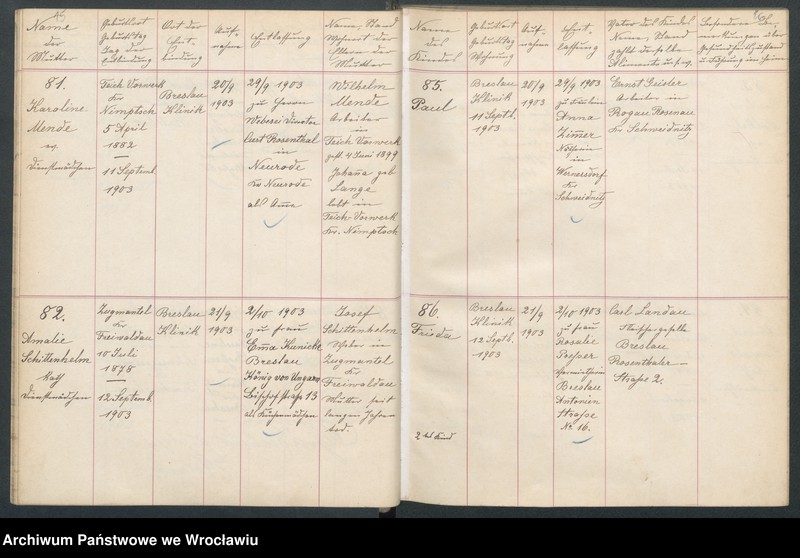 45
Name
der
Mutter
Geburtsort
Geburtstag
Tag der
Entbindung
Ort der
Ent-
bindung
Auf-
nahme
Entlassung
Name, Stand
Wohnort der
Eltern der
Mutter
81.
Karoline
Mende
ev.
Dienstmädchen
Teich Vorwerk
Kr.
Nimptsch
5 April
1882
11 Septemb.
1903
Breslau
Klinik
20/9
1903
29/9 1903
zu Herrn
Weberei Director
Rosenthal
in
Neurode
Kr. Neurode
als Amme
Wilhelm
Mende
Arbeiter
in
Teich Vorwerk
gest. 4 Juni 1899
Johanna geb
Lange
lebt in
Teich Vorwerk
Kr. Nimptsch
82.
Amalie
Schittenhelm
Kath
Dienstmädchen
Zugmantel
Kr.
Freiwaldau
10 Juli
1878
12 Septemb.
1903
Breslau
Klinik
21/9
1903
2/10 1903
zu Frau
Emma Kunicke
Breslau
König von Ungarn
Bischofstraße 13
als Küchenmädchen
Josef
Schittenhelm
Weber in
Zugmantel
Kr.
Freiwaldau
Mutter seit
langen Jahren
tod.
Name
des
Kindes
Geburtsort
Geburtstag
Wohnung
Auf-
nahme
Ent-
lassung
Vater des Kindes
Name, Stand
zahlt derselbe
Alimente
Besondere Be-
merkungen über
Gesundheitszustand
u. Führung im Heim
85.
Paul
Breslau
Klinik
11 Septb.
1903
20/9
1903
29/9 1903
zu Frau
Anna
Zimmer
Näherin
in
Wernersdorf
Kr.
Schweidnitz
Ernst Geisler
Arbeiter in
Rogau Rosenau
Kr. Schweidnitz
86.
Frieda
2tes Kind
Breslau
Klinik
12 Septb.
1903
21/9
1903
2/10 1903
zu Frau
Rosalie
Breslau
Antonien
Straße
No. 16.
Carl Landau
Breslau
Rosenthaler-
Straße 2.
Archiwum Państwowe we Wrocławiu